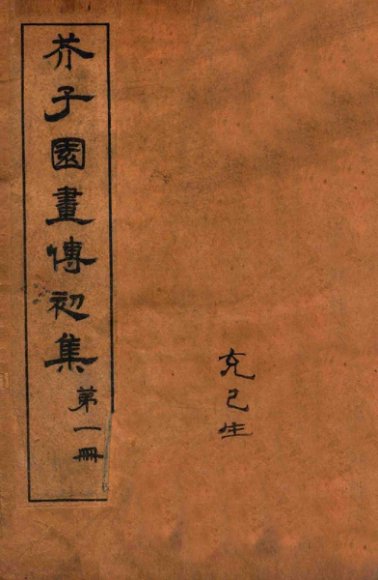 芥子園畫傳初集 第一冊
克己生